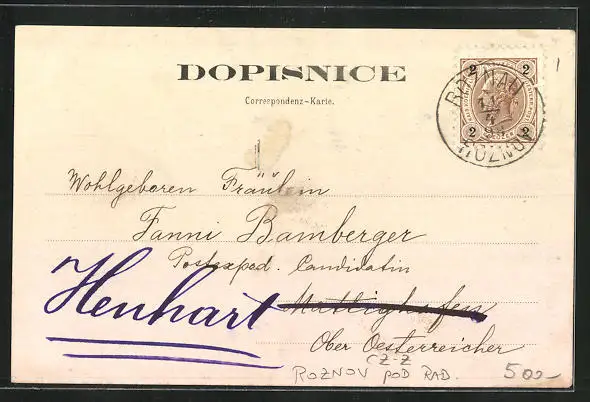 DOPISNICE
Correspondenz-Karte.
2 2
2 2
ROŽNAU
4
ROŽNOV
Wohlgeboren Fräulein
Fanni Bamberger
Postexped. Candidatin
Henhart
Mattighofen
Ober Oesterreicher
CZ-Z
ROZNOV POD RAD.
500-